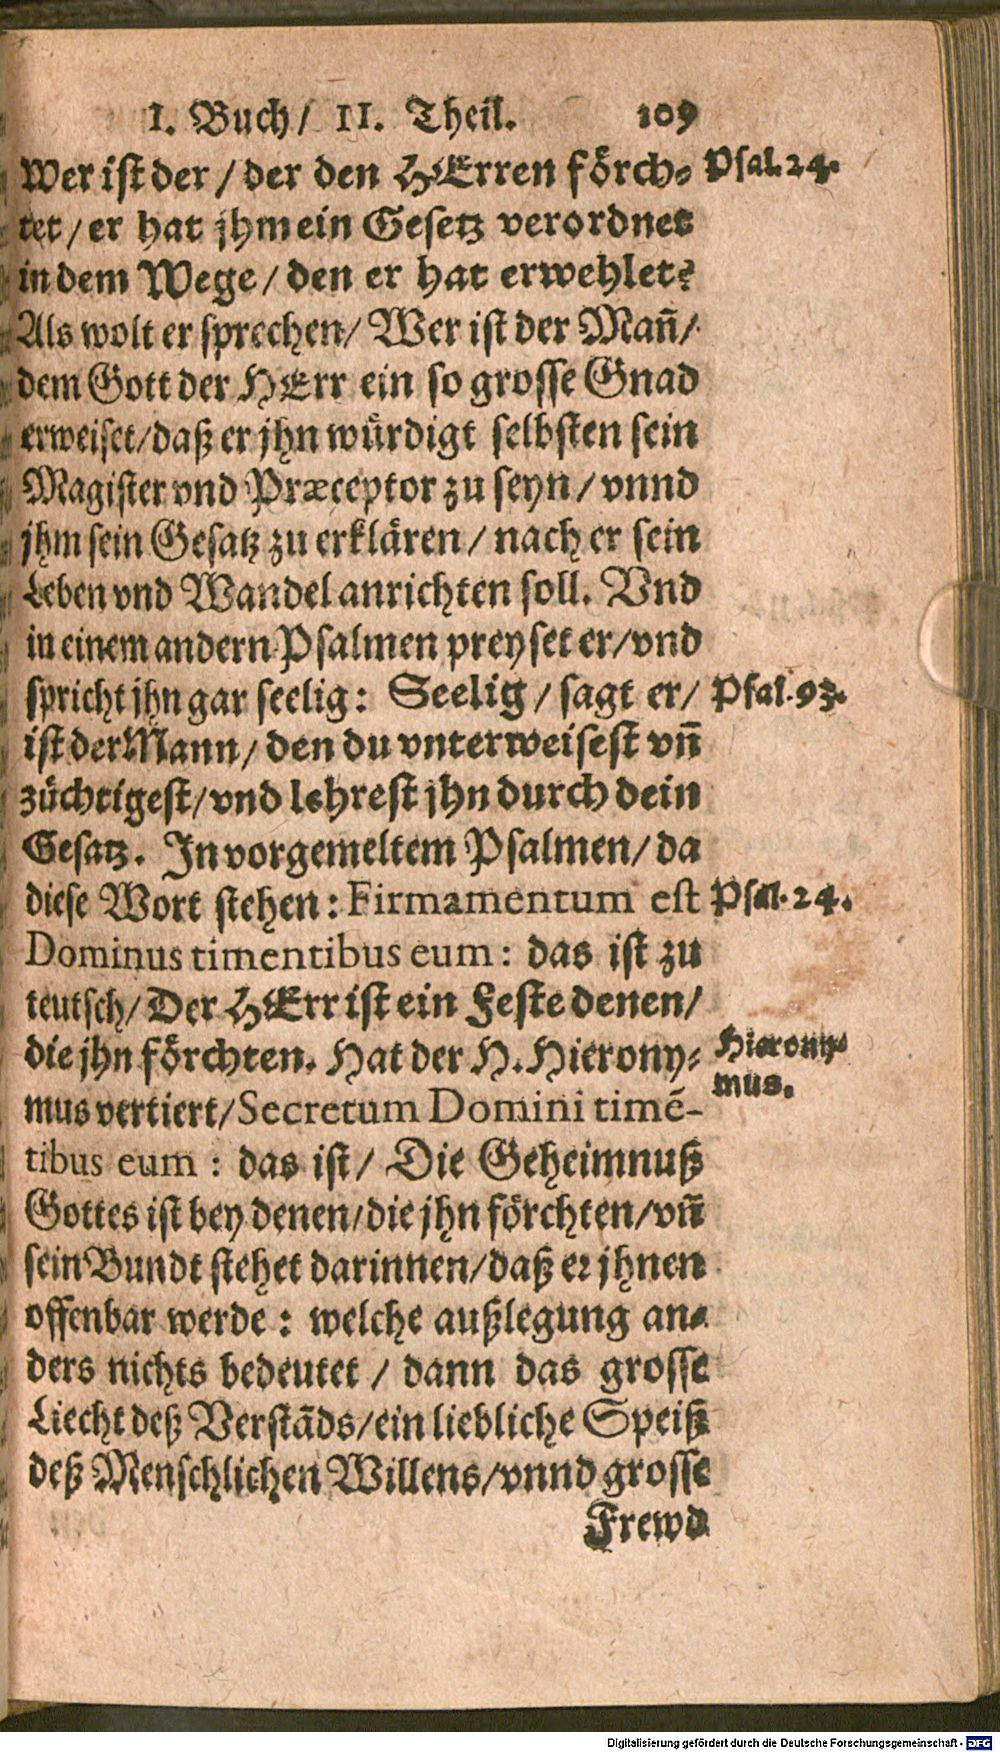 I. Buch/ II. Theil. 109
Wer ist der / der den HErren förch- Psal. 24.
tet / er hat jhm ein Gesetz verordnet
in dem Wege / den er hat erwehlet?
Als wolt er sprechen/ Wer ist der Mañ/
dem Gott der HErr ein so grosse Gnad
erweiset/daß er jhn würdigt selbsten sein
Magister vnd Præceptor zu seyn / vnnd
jhm sein Gesatz zu erklären / nach er sein
Leben vnd Wandel anrichten soll. Vnd
in einem andern Psalmen preyset er/vnd
spricht jhn gar seelig: Seelig / sagt er/ Psal. 93.
ist der Mann / den du vnterweisest vñ
züchtigest/vnd lehrest jhn durch dein
Gesatz. In vorgemeltem Psalmen/ da
diese Wort stehen: Firmamentum est Psal. 24.
Dominus timentibus eum: das ist zu
teutsch/ Der HErr ist ein Feste denen/
die jhn förchten. Hat der H. Hierony- Hierony-
mus.
mus vertiert/Secretum Domini timē-
tibus eum: das ist/ Die Geheimnuß
Gottes ist bey denen/die jhn förchten/vñ
sein Bundt stehet darinnen/daß er jhnen
offenbar werde: welche außlegung an-
ders nichts bedeutet / dann das grosse
Liecht deß Verstāds/ein liebliche Speiß
deß Menschlichen Willens/vnnd grosse
Frewd
Digitalisierung gefördert durch die Deutsche Forschungsgemeinschaft - DFG